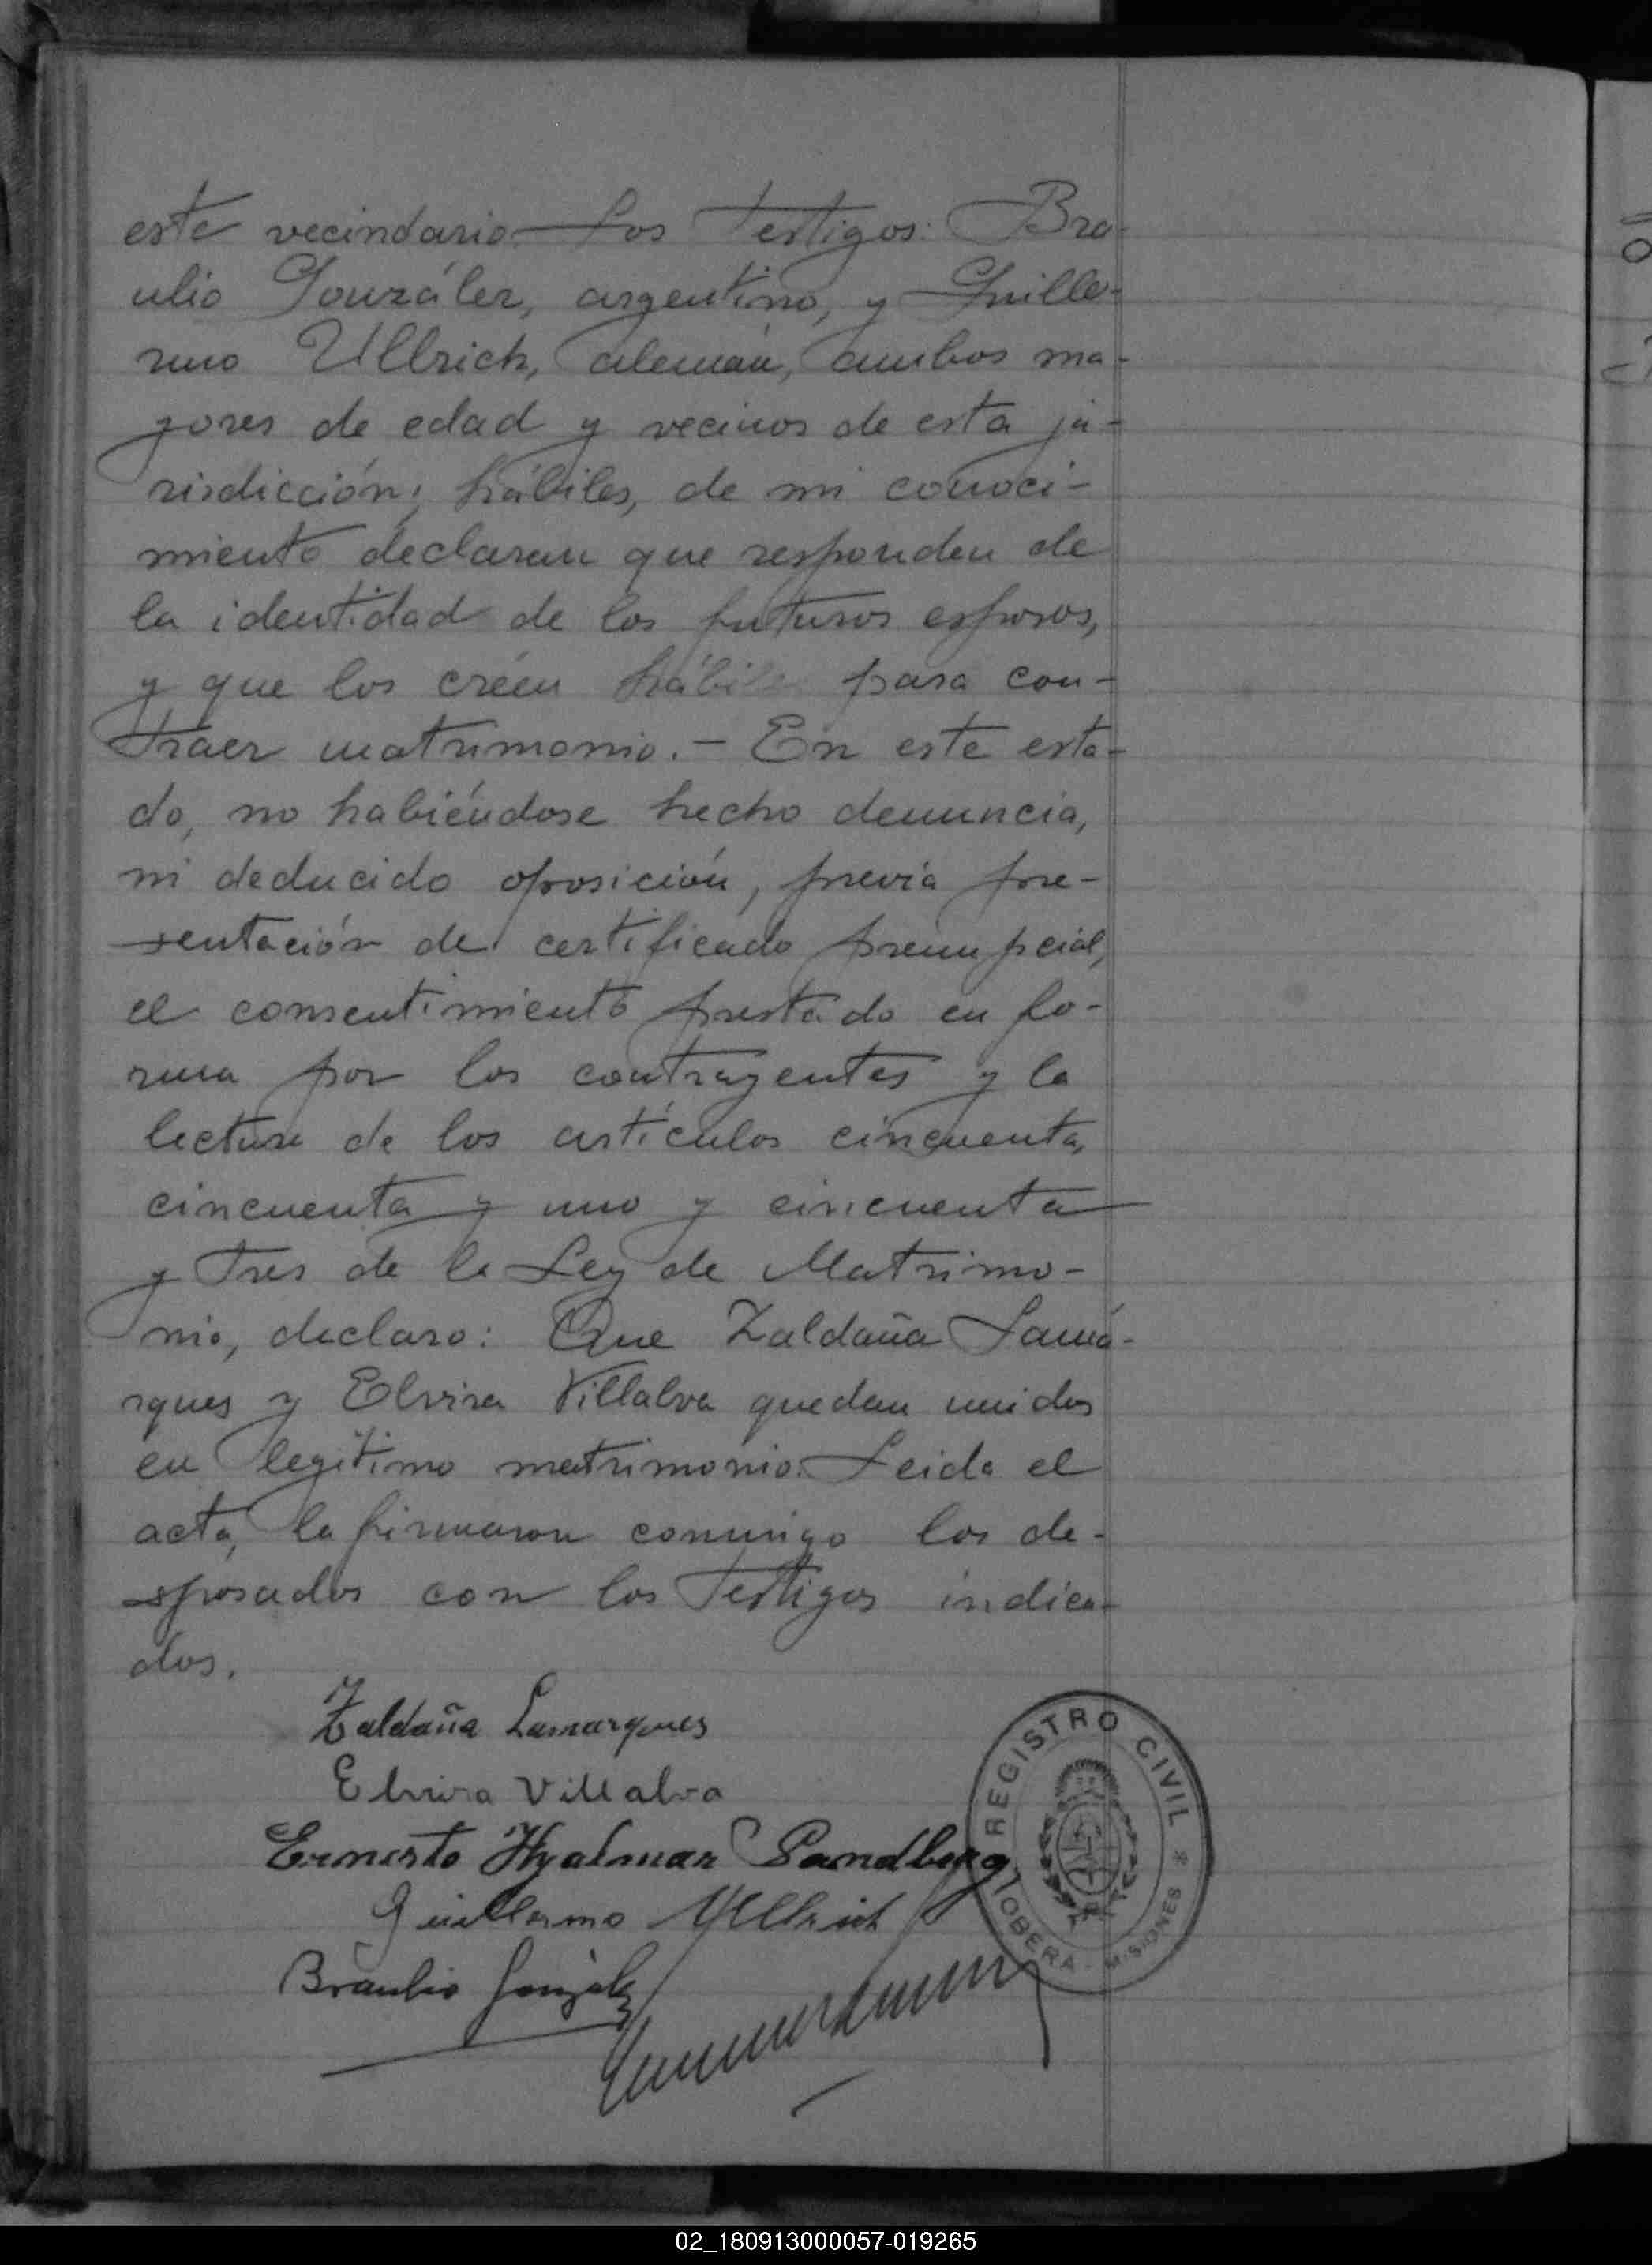 este vecindario.- Los Testigos: Bra-
ulio González, argentino, y Guille-
rmo Ullrich, alemán, ambos ma-
yores de edad y vecinos de esta ju-
risdicción; hábiles, de mi conoci-
miento declaran que responden de
la identidad de los futuros esposos,
y que los créen hábiles para con-
traer matrimonio.- En este esta-
do, no habiéndose hecho denuncia,
ni deducido oposición, previa pre-
sentación de certificado prenupcial,
el consentimiento prestado en fo-
rma por los contrayentes y la
lectura de los artículos cincuenta,
cincuenta y uno y cincuenta
y tres de la Ley de Matrimo-
nio, declaro: Que Zaldaña Lamá-
rques y Elvira Villalva quedan unidos
en legítimo matrimonio. Leida el
acta, la firmaron conmigo los de-
sposados con los Testigos indica-
dos.
Zaldaña Lamarques
Elvira Villalva
Ernesto Hyalmar Sandberg
Guillermo Ullrich
Braulio González
REGISTRO CIVIL * OBERA - MISIONES
02_180913000057-019265